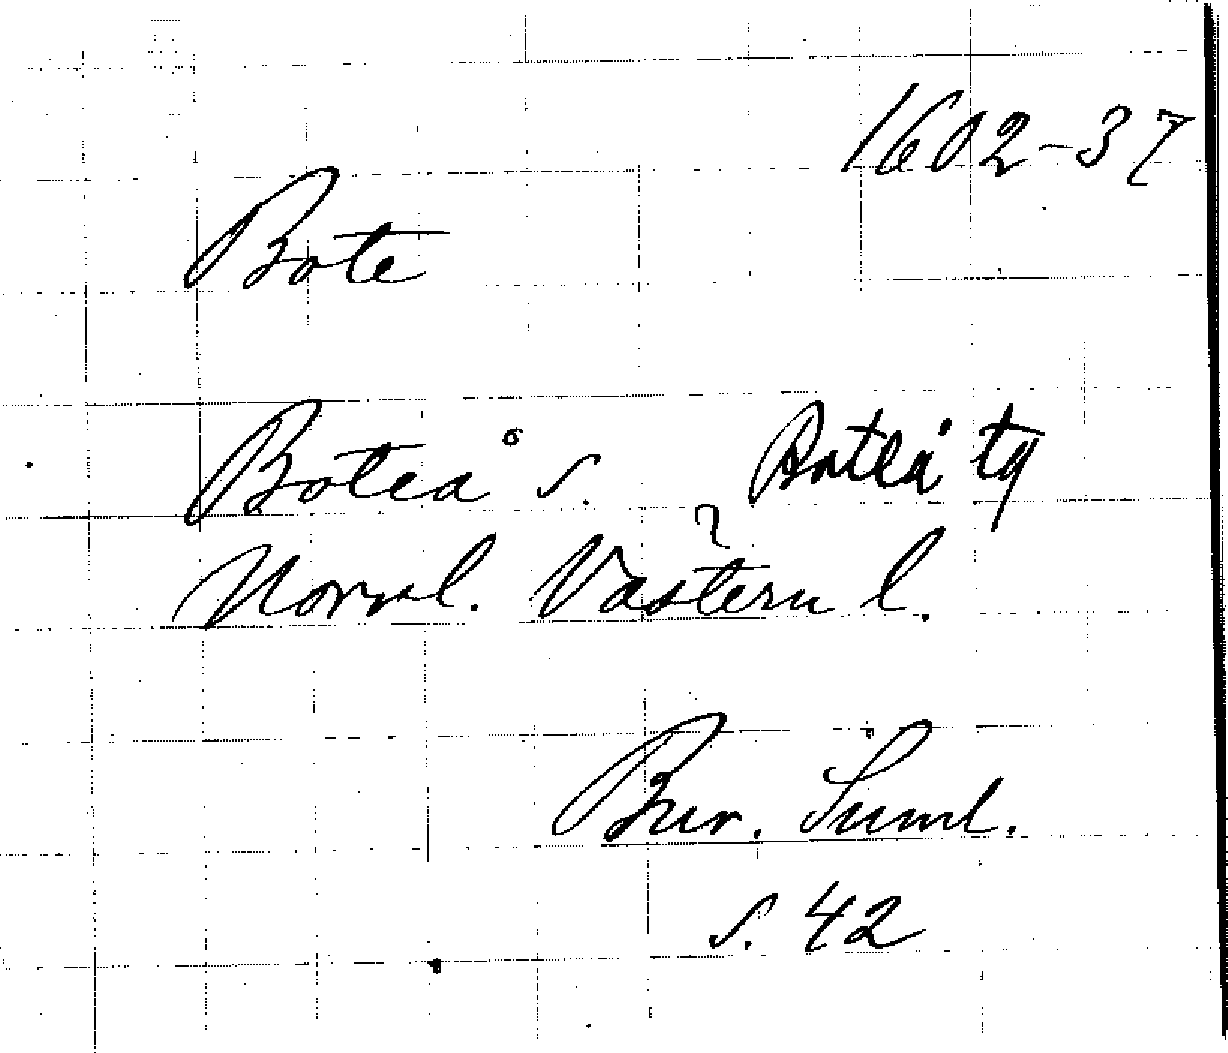 1602-37
Bote
Boteå s. Boteå tg
Norrl. Västern l.
Bur. Suml.
s. 42